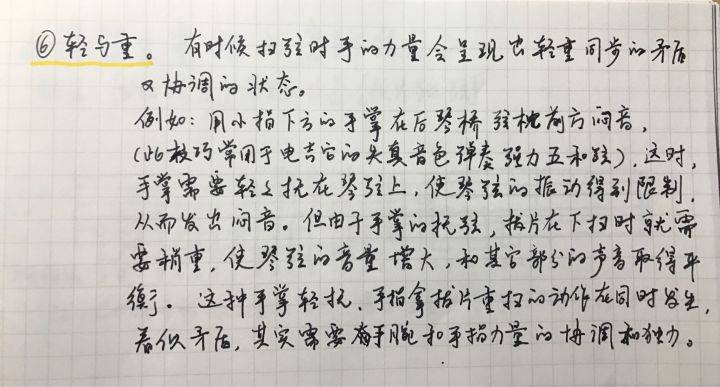 ⑥轻与重。有时候扫弦时手的力量会呈现出轻重同步的矛盾
又协调的状态。
例如：用小指下方的手掌在后琴桥弦枕前方闷音，
(此技巧常用于电吉它的失真音色弹奏强力五和弦)，这时，
手掌需要轻轻抚在琴弦上，使琴弦的振动得到限制，
从而发出闷音。但由于手掌的抚弦，拨片在下扫时就需
要稍重，使琴弦的音量增大，和其它部分的声音取得平
衡。这种手掌轻抚、手指拿拨片重扫的动作在同时发生，
看似矛盾，其实需要手腕和手指力量的协调和独力。